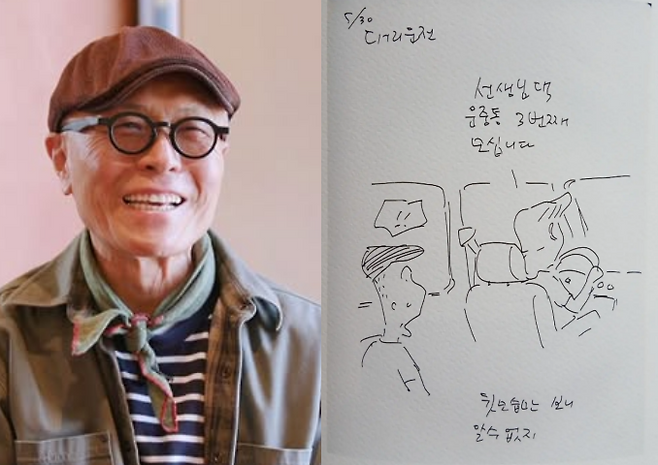 5/30
대리운전
선생님댁
운중동 3번째
모십니다
뒷모습만 보니
알수 없지